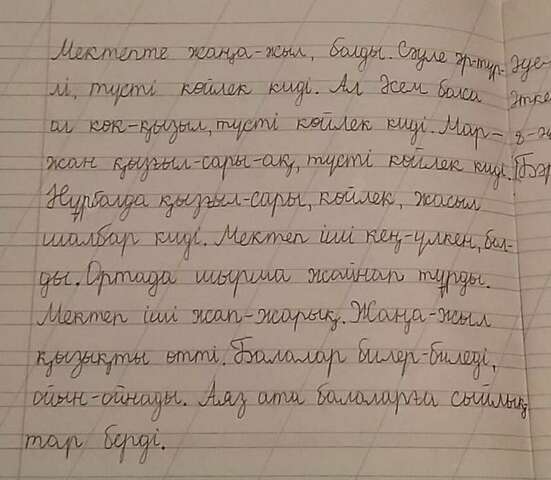 Мектепте жаңа-жыл, балды. Сәуле әр-түр-
лі, түсті көйлек киді. Ал Әсем болса
ал көк-қызыл, түсті көйлек киді. Мар-
жан қызғыл-сары-ақ, түсті көйлек киді.
Нұрбалда қызғыл-сары, көйлек, жасыл
шалбар киді. Мектеп іші кең-үлкен, бол-
ды. Ортада шырма жайнап тұрды.
Мектеп іші жап-жарық. Жаңа-жыл
қызықты өтті. Балалар билер-биледі,
ойын-ойнады. Аяз ата балаларға сыйлық
тар берді.